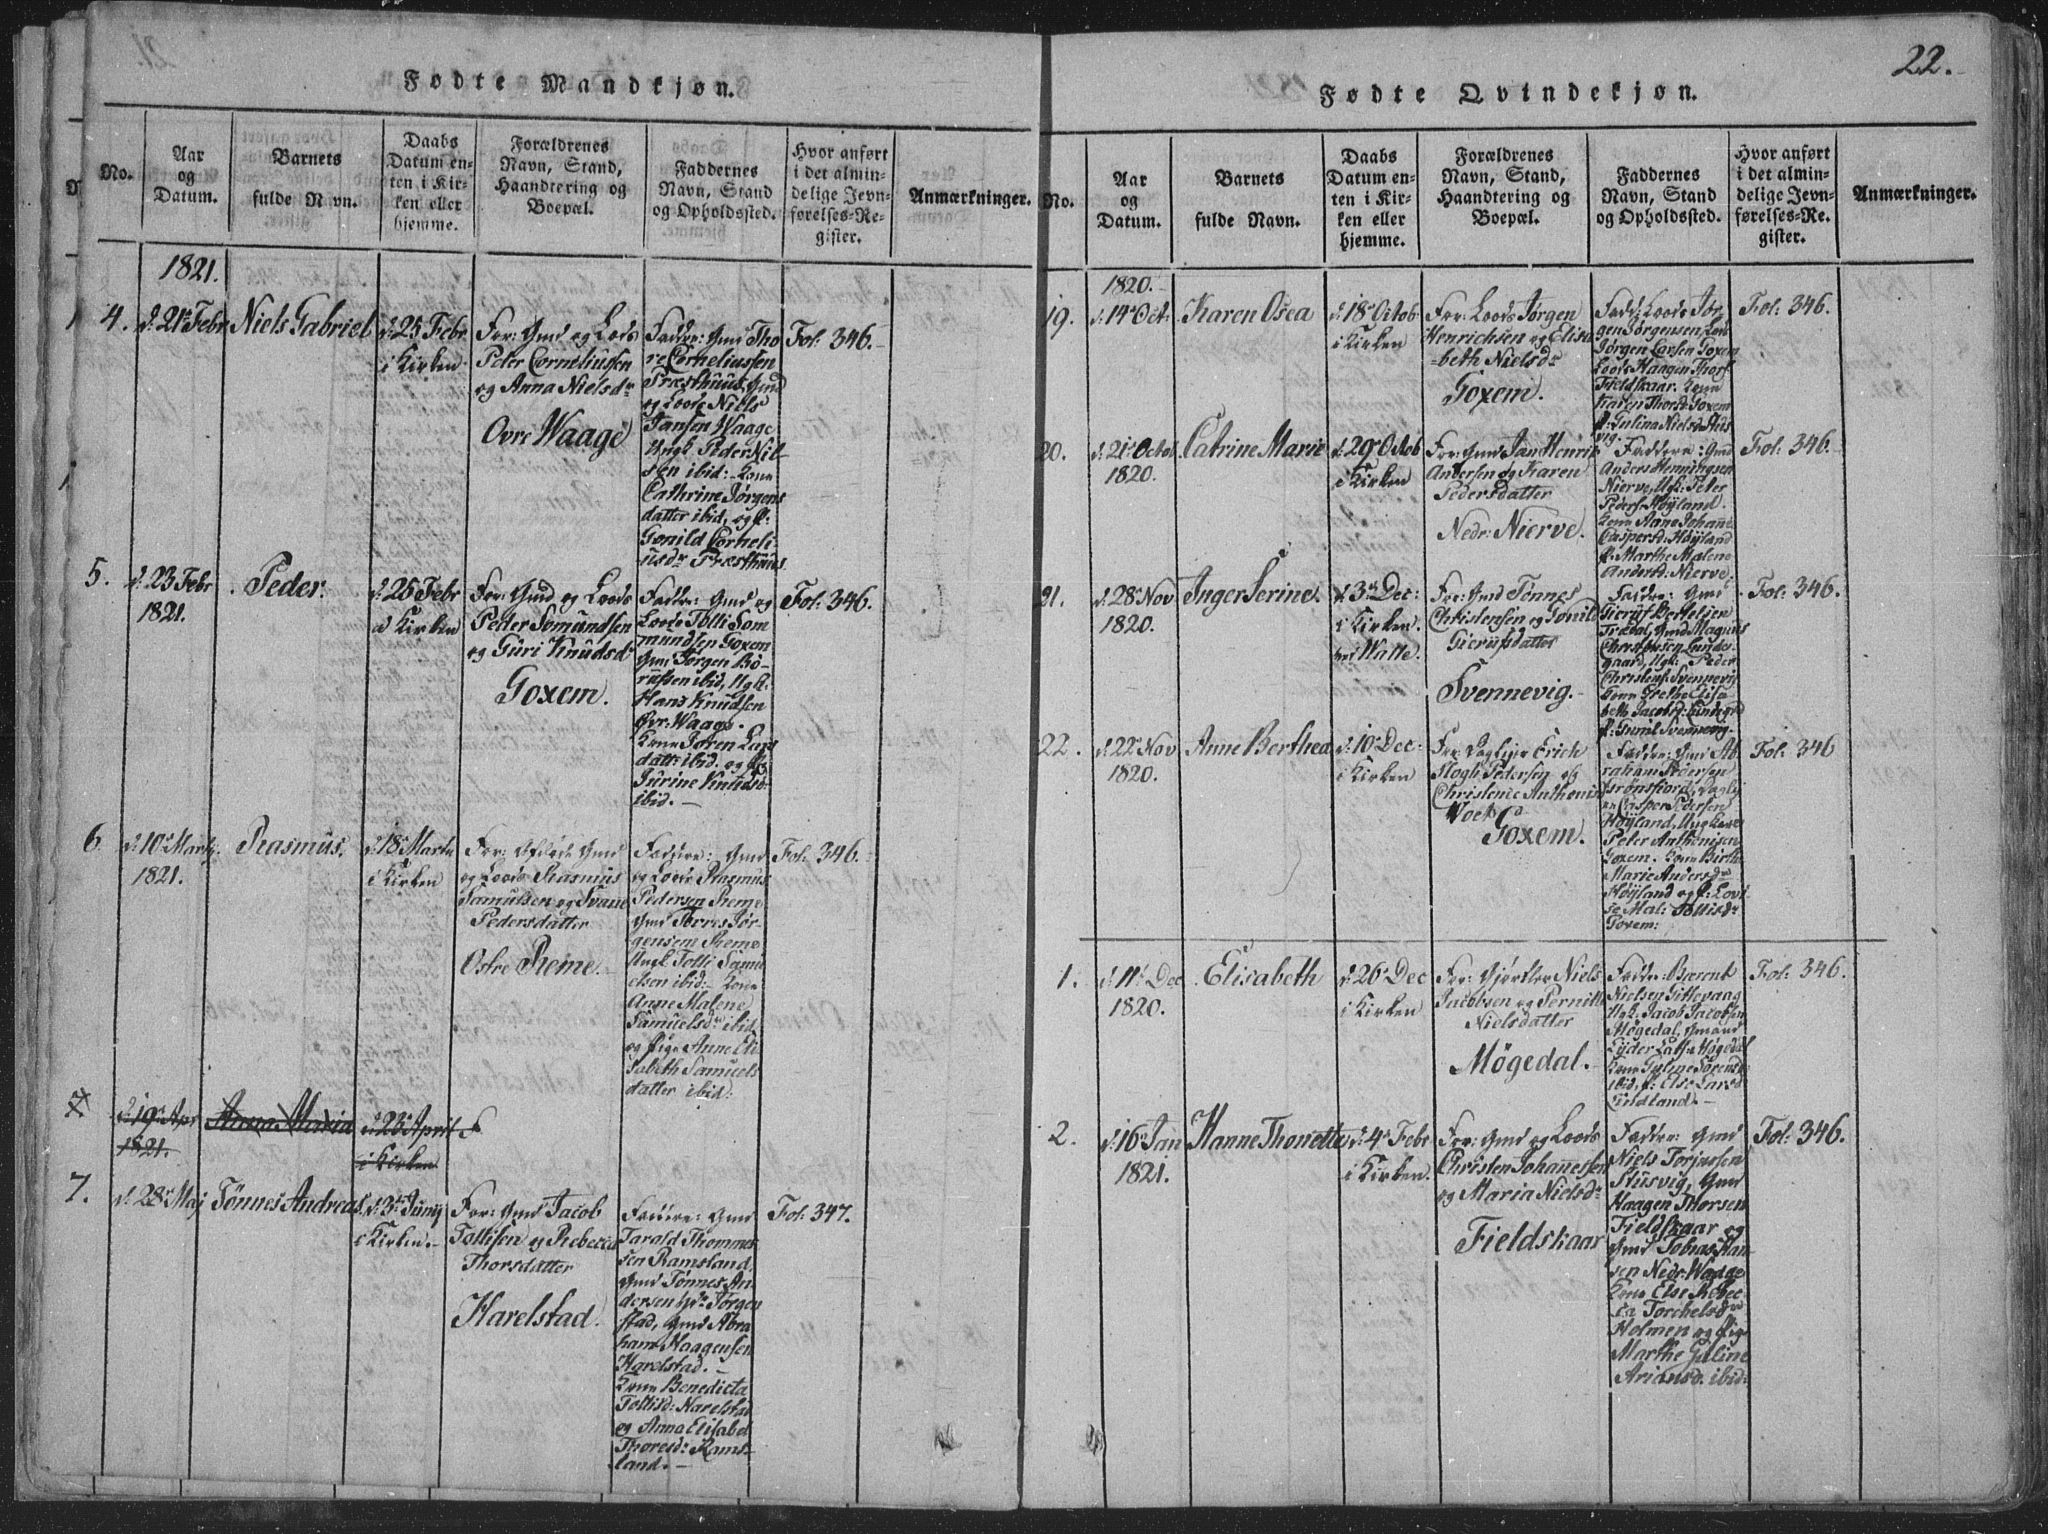 Fødte Mandkjøn.
No.
Aar
og
Datum.
Barnets
fulde Navn.
Daabs
Datum en-
ten i Kir-
ken eller
hjemme.
Forældrenes
Navn, Stand,
Haandtering og
Boepæl.
Faddernes
Navn, Stand
og Opholdssted.
Hvor anført
i det almin-
delige Jevn-
førelses-Re-
gister.
Anmærkninger.
1821.
4.
d. 21de Febr
Niels Gabriel
d. 25 Febr
i Kirken
For: Gmd og Lods
Peter Corneliussen
og Anna Nielsdr
Ovre Waage
Faddre: Gmd Tho
re Corneliussen
Præsthuus, Gmd
og Lods Niels
Jansen Waage
Ungk Peder Nil-
sen ibid: Kone
Cathrine Jørgens
datter ibid, og P:
Gonild Corneli-
usdr Præsthuus
Fol: 346.
5.
d. 23 Febr
1821.
Peder.
d. 25 Febr
i Kirken
For: Gmd og Lods
Peder Somundsen
og Guri Knudsd
Goxem.
Faddre: Gmd og
Lods Tolli Som
mundsen Goxem
Gmd Jørgen Bö-
rufsen ibid, Ugk.
Hans Knudsen
Øvr: Waage.
Kone Joren Lars
datt: ibid. og P
Jurine Knudsd
ibid. –
Fol: 346.
6
d. 10 Martz
1821.
Rasmus.
d. 18 Martz
i Kirken
For: Afdøde Gmd
og Loods Rasmus
Samuelsen og Svane
Pedersdatter
Ostre Reme.
Faddre: Gmd
og Loods Rasmus
Pedersen Reme
Gmd Torres Jør-
gensem Reme
Ungk Tolli Samu
elsen ibid: Kone
Anne Malene
Samuelsdr ibid
og Pige Anne Eli
sabeth Samuels
datter ibid:
Fol: 346.
7
d. 19 Apr
1821.
Anna Maria
d. 23 April
i Kirken
F
7.
d. 28 Maj
Tönnes Andreas
d. 3die Juny
i Kirken. –
For: Gmd Jacob
Tollisen og Rebecca
Thorsdatter
Harelstad.
Faddre: Gmd
Tarald Thommes
sen Ramsland,
Gmd Tønnes An
dersen Jørgen
stad, Gmd Abra
ham Haagensen
Harelstad. –
Kone Benedicta
Tollisd: Narelstad
og Anna Elisabet
Thoresd: Rams-
land. –
Fol: 347.
22.
Fødte Qvindekjøn.
No.
Aar
og
Datum.
Barnets
fulde Navn.
Daabs
Datum en-
ten i Kir-
ken eller
hjemme.
Forældrenes
Navn, Stand,
Haandtering og
Boepæl.
Faddernes
Navn, Stand
og Opholdssted.
Hvor anført
i det almin-
delige Jevn-
førelses-Re-
gister.
Anmærkninger.
1820.
19.
d. 14 Oct.
Karen Osea
d. 18 Octob
i Kirken
For: Loods Jørgen
Henrichsen og Elisa
-beth Nielsdr
Goxem.
Fadd: Loods Jør
gen Jørgensen Lods
Jørgen Larsen Goxem
Loods Haagen Thors
Fieldskaar. Kone
Karen Thorsd: Goxem
P: Gulina Nielsd: Stus
vig.
Fol: 346.
20.
d. 21 Octob
1820.
Catrine Marie
d. 29 Octob
i Kirken
For: Gmd Jan Henrik
Andersen og Karen
Pedersdatter
Nedr: Nierve.
Faddere: Gmd
Anders Henningsen
Nierve, Ugk: Peter
Peders: Höyland.
Kone Anne Johane
Caspersd: Höyland
P: Marthe Malene
Andersd: Nierve.
Fol: 346.
21.
d. 28 Nov
1820.
Inger Serine.
d. 3 Dec:
i Kirken.
ved Watte.
For: Gmd Tönnes
Christensen og Gonild
Gierulfsdatter
Svennevig. –
Faddre: Gmd
Gierulf Bertelsen
Trædal, Gmd Magnus
Christensen Lunde-
gaard, Ugk: Peder
Christens: Svennevig
Kone Grethe Elisa-
beth Jacobsd: Lundegrd
P: Gunil Svennevig –
Fol: 346.
22.
d. 22 Nov
1820.
Anne Berthea
d. 10 Dec:
i Kirken
For: Daglejer Erich
Hogh Pedersen og
Christense Anthonis
Voet
Goxem.
Faddre: Gmd Ab-
raham Pedersen
Grönsfiord, Daglej
er Casper Pedersen
Höyland, Ungkarl
Peter Anthonisen
Goxem. Kone Birthe
Marie Andersdr
Höyland og P: Lovi
se Mal: Tollisdr
Goxem:
Fol: 346
1.
d. 11 Dec
1820.
Elisabeth
d. 26 Dec
i Kirken
For: Gjørtler Niels
Jacobsen og Pernille
Nielsdatter
Mögedal.
Faddre: Berent
Nielsen Gittevaag
Ugk: Jacob Jacobsen
Mögedal, Gmand
Ejder Lars: Høgedal
Kone Guline Sörensd
ibid, P: Else Larsd
Lindland. –
Fol: 346.
2.
d. 16 Jan
1821.
Hanne Thonette
d. 4 Febr
i Kirken.
For: Gmd og Loods
Christen Johannessen
og Maria Nielsdr
Fieldskaar
Faddre: Gmd
Niels Torjussen
Stusvig, Gmd
Haagen Thorsen
Fieldskaar og
Gmd Tobias Han-
sen Nedr: Waage
Kone Else Rebec-
ca Torchelsdr
Holmen og Pige
Marthe Guline
Ariansd. ibid:
Fol: 346.